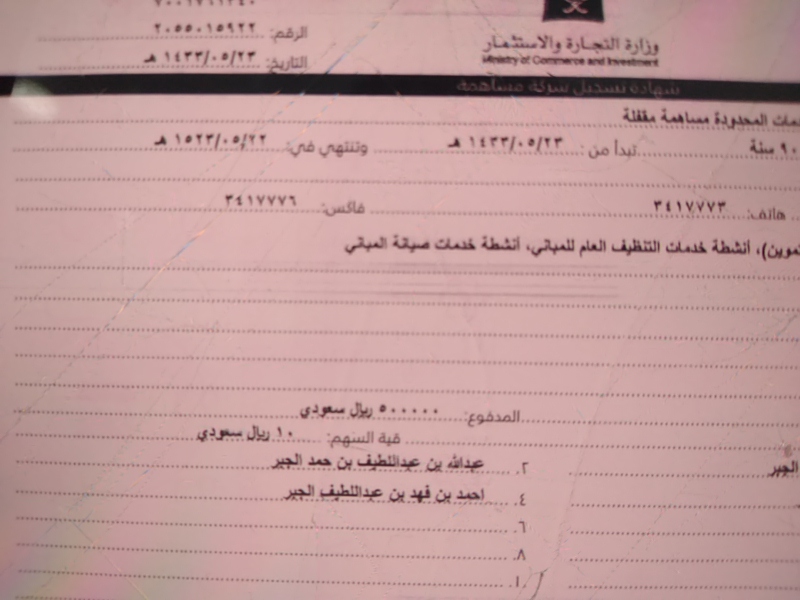 الرقم: ٢٠٥٥٠١٥٩٢٢
التاريخ: ١٤٣٣/٠٥/٢٣ هـ
وزارة التجارة والاستثمار
Ministry of Commerce and Investment
شهادة تسجيل شركة مساهمة
المحدودة مساهمة مقفلة
٩٠ سنة تبدأ من: ١٤٣٣/٠٥/٢٣ هـ وتنتهي في: ١٥٢٣/٠٥/٢٢ هـ
هاتف: ٣٤١٧٧٧٣ فاكس: ٣٤١٧٧٧٦
أنشطة خدمات التنظيف العام للمباني، أنشطة خدمات صيانة المباني
المدفوع: ٥٠٠٠٠٠٠ ريال سعودي
قية السهم: ١٠ ريال سعودي
الجبر ٢. عبدالله بن عبداللطيف بن حمد الجبر
٤. احمد بن فهد بن عبداللطيف الجبر
٦.
٨.